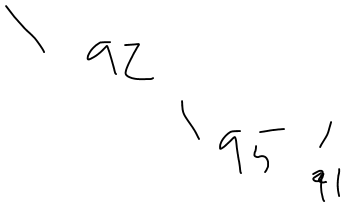 \ 92
\ 95 /
91